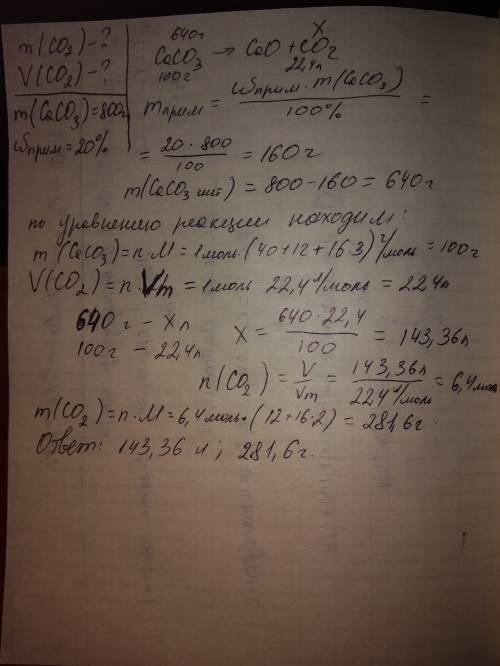 m(CO₂)-?
V(CO₂)-?
m(CaCO₃)=800г
ωприм=20%
640г X
CaCO₃ → CaO + CO₂
100г 22,4л
mприм = ωприм · m(CaCO₃) / 100% =
= 20 · 800 / 100 = 160г
m(CaCO₃ чист) = 800-160 = 640г
по уравнению реакции находим:
m(CaCO₃)=n·M=1моль·(40+12+16·3)г/моль=100г
V(CO₂)=n·Vm=1моль 22,4л/моль=22,4л
640г - Xл
100г - 22,4л
X = 640·22,4 / 100 = 143,36л
n(CO₂) = V / Vm = 143,36л / 22,4л/моль = 6,4моль
m(CO₂)=n·M=6,4моль·(12+16·2)=281,6г.
Ответ: 143,36 л; 281,6г.